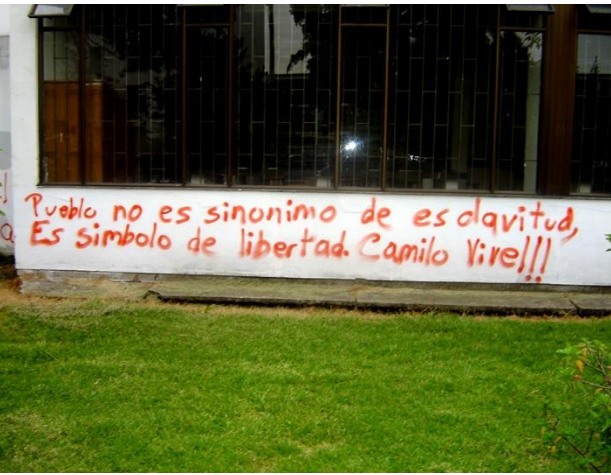 Pueblo no es sinonimo de esclavitud,
Es simbolo de libertad. Camilo Vive!!!